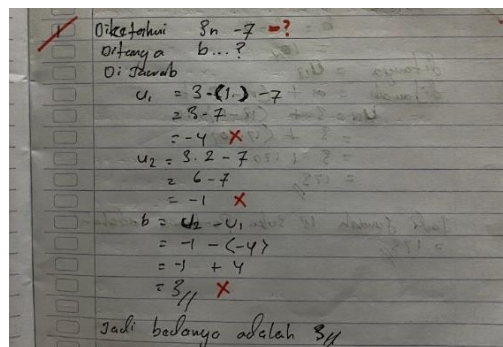 1 Diketahui 3n - 7 - ?
Ditanya b...?
Di Jawab
U₁ = 3 · (1) - 7
= 3 - 7
= -4 ×
U₂ = 3 . 2 - 7
= 6 - 7
= -1 ×
b = U₂ - U₁
= -1 - (-4)
= -1 + 4
= 3// ×
Jadi bedanya adalah 3//